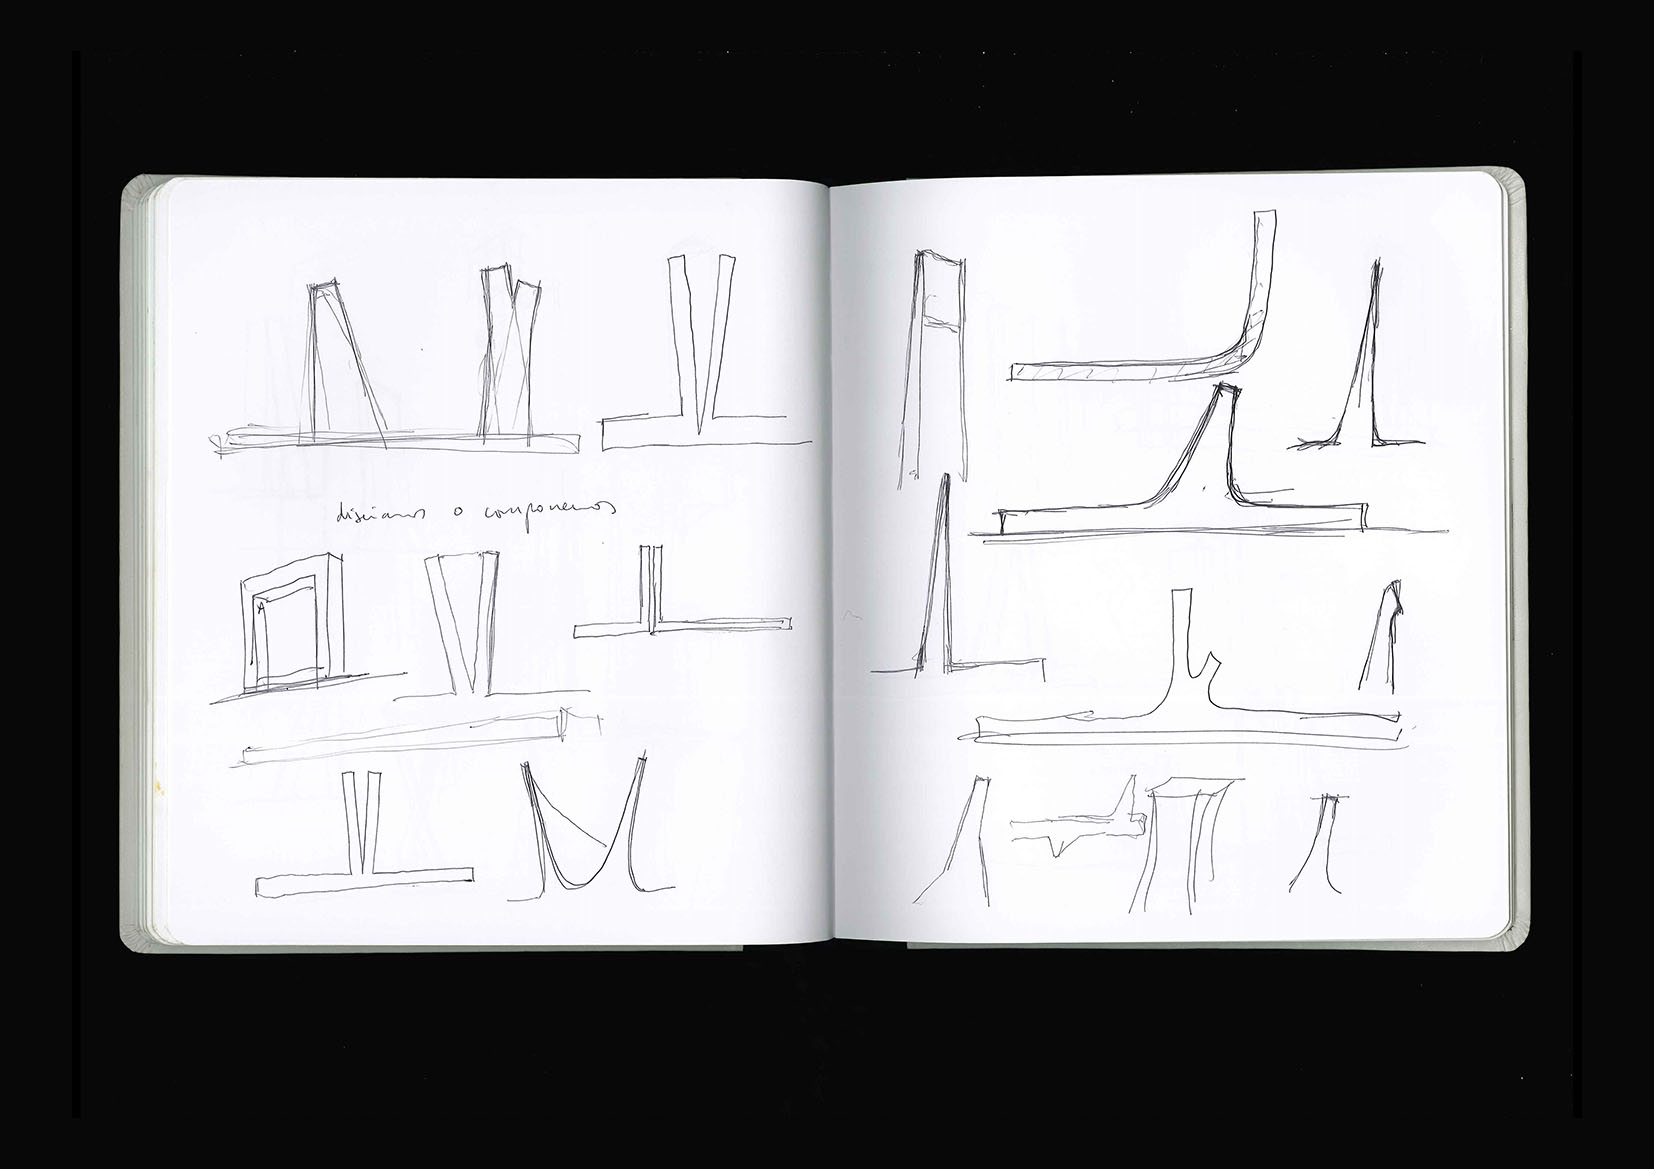 diseñamos o componemos